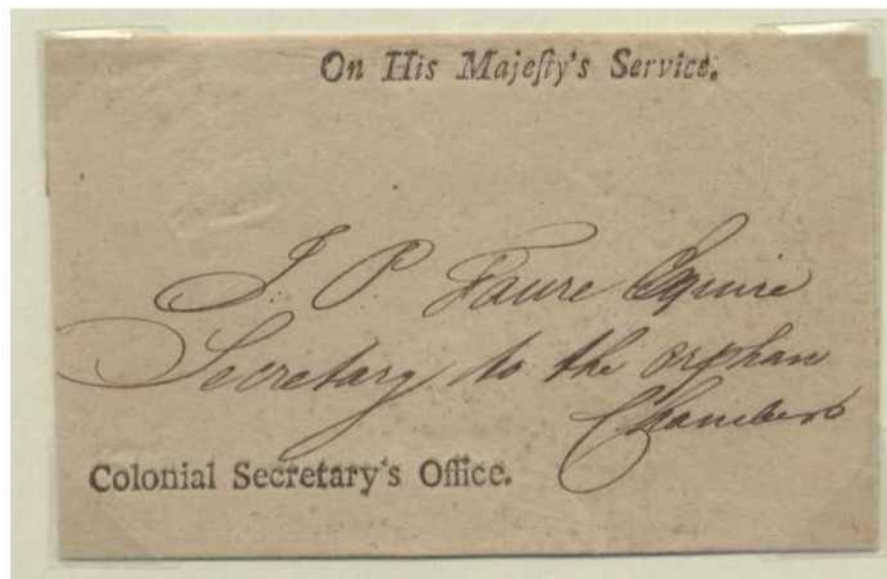 On His Majeſty's Service.
J. P. Faure Esquire
Secretary to the orphan
Chambers
Colonial Secretary's Office.